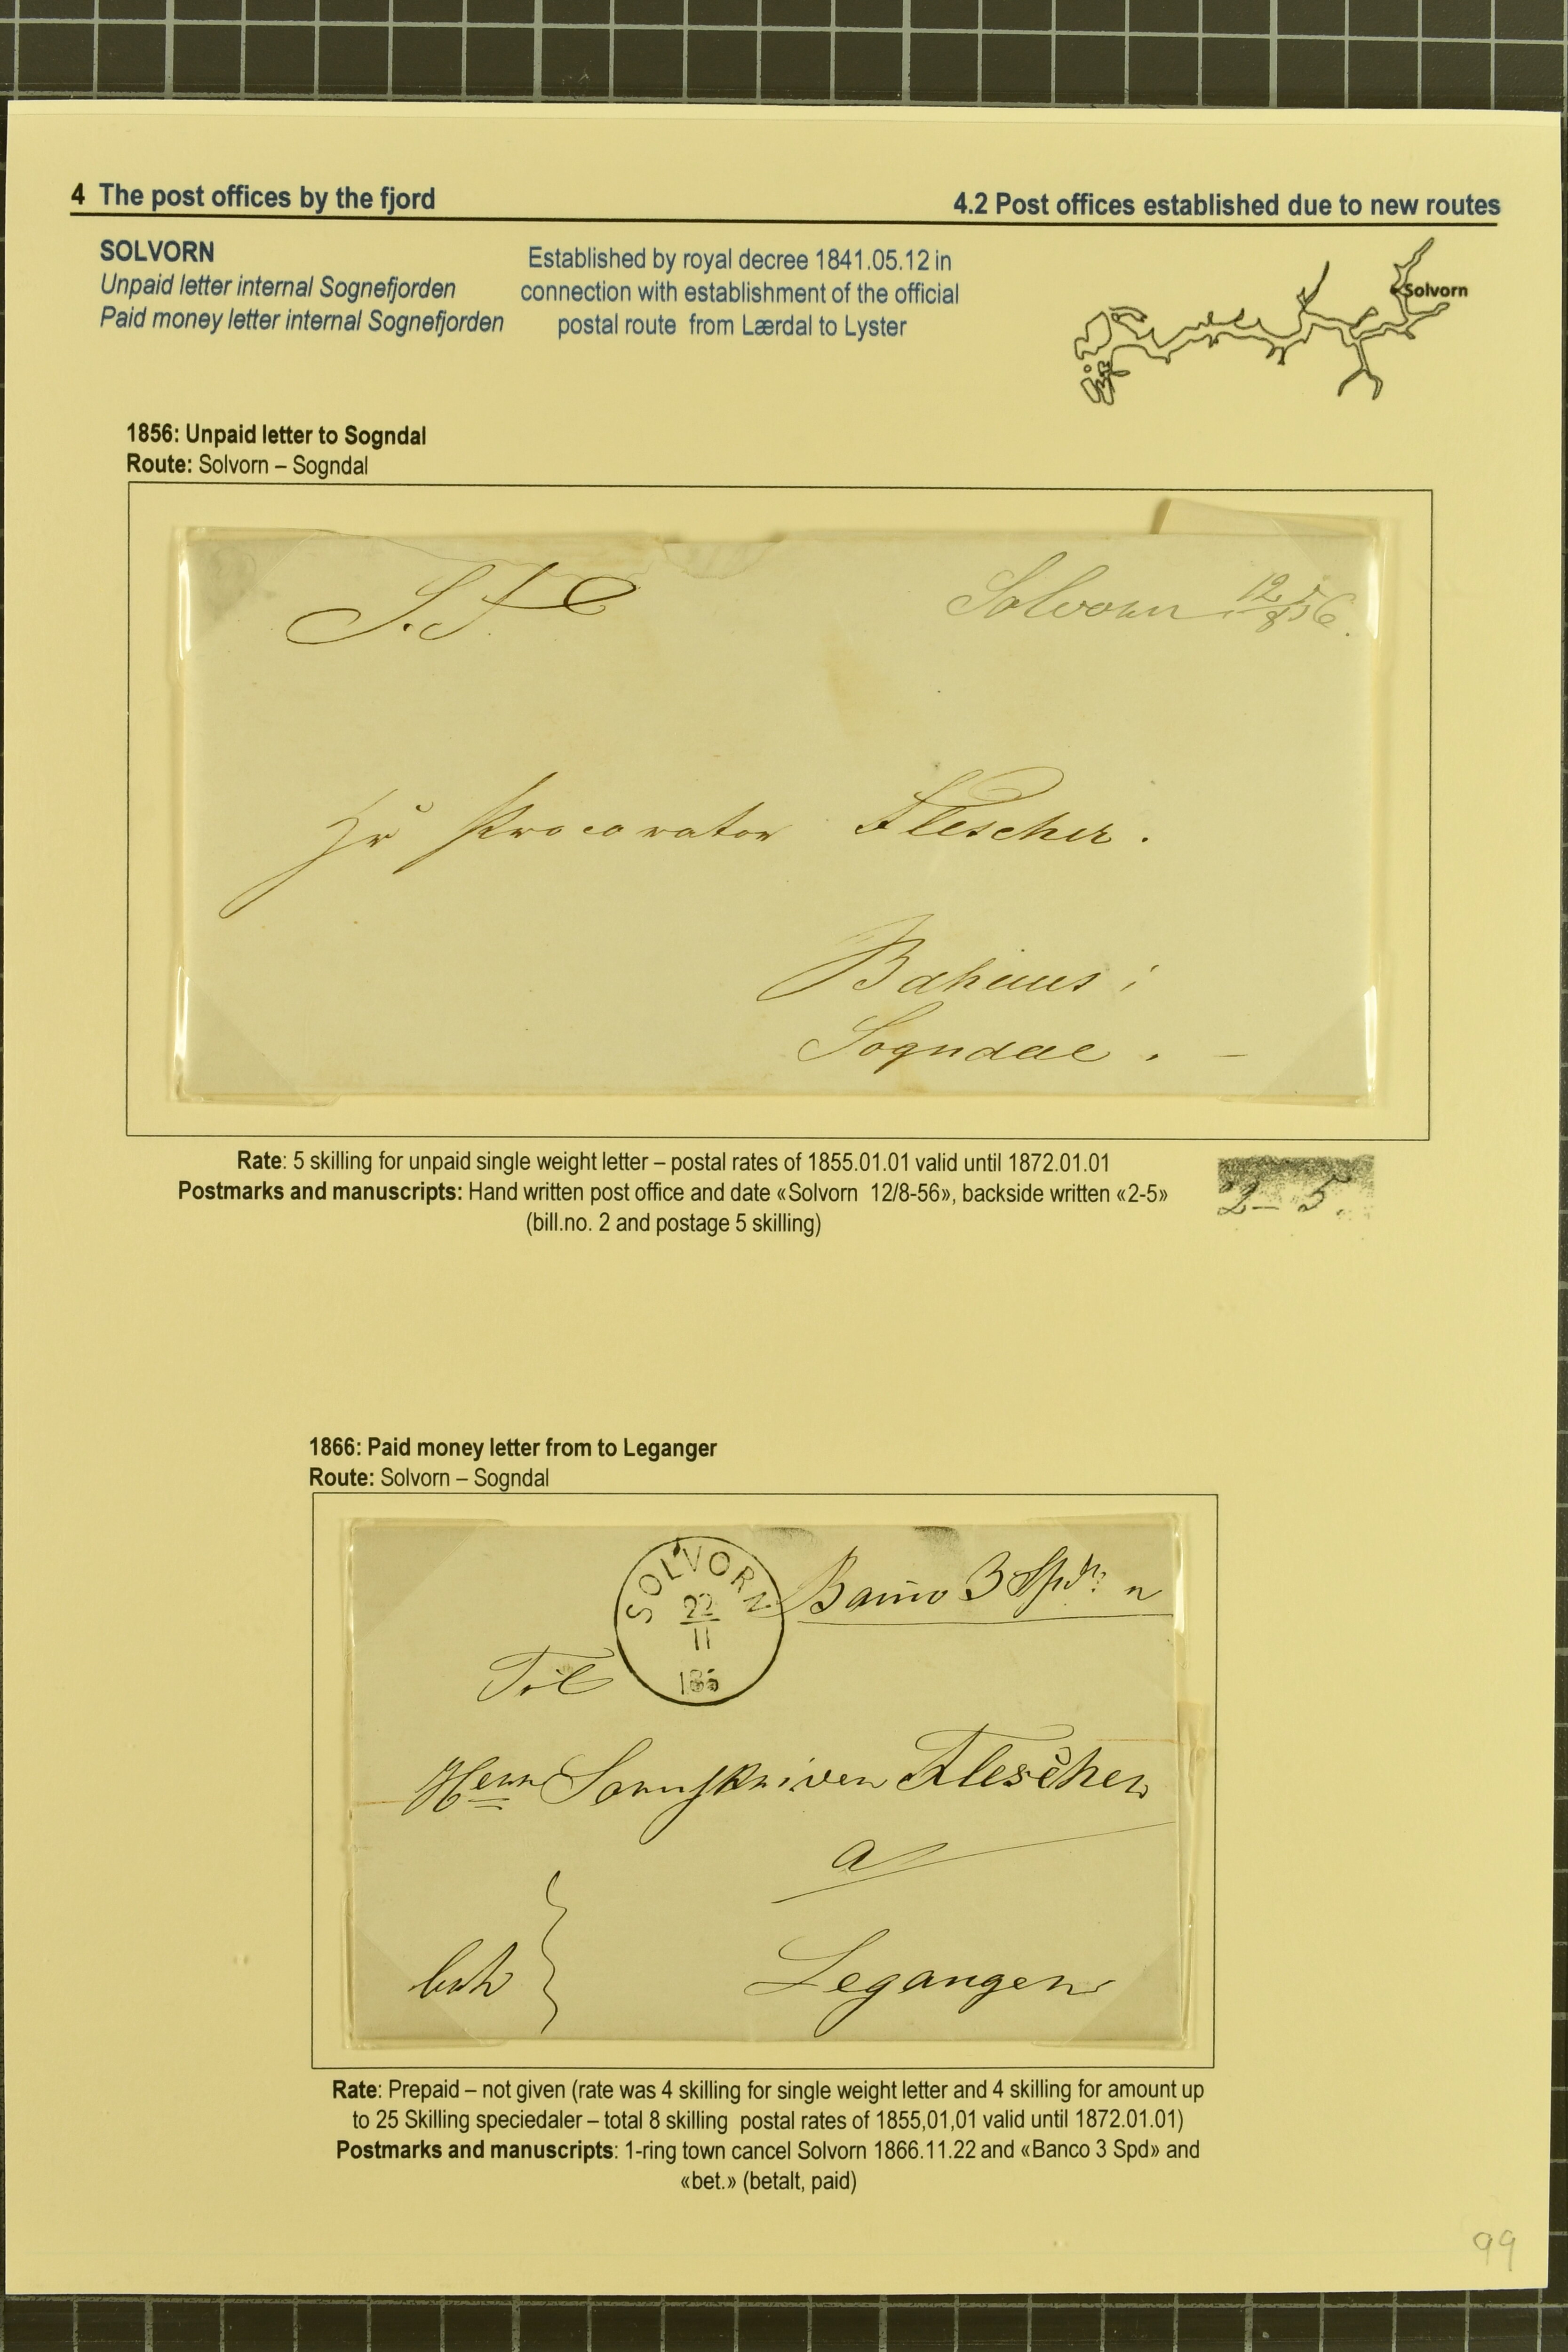 4 The post offices by the fjord
4.2 Post offices established due to new routes
SOLVORN
Unpaid letter internal Sognefjorden
Paid money letter internal Sognefjorden
Established by royal decree 1841.05.12 in
connection with establishment of the official
postal route from Lærdal to Lyster
Solvorn
1856: Unpaid letter to Sogndal
Route: Solvorn – Sogndal
Solvorn 12/8 56.
Hr Procurator Flescher.
i
Sogndal. –
Rate: 5 skilling for unpaid single weight letter – postal rates of 1855.01.01 valid until 1872.01.01
Postmarks and manuscripts: Hand written post office and date «Solvorn 12/8-56», backside written «2-5»
(bill.no. 2 and postage 5 skilling)
2– 5.
1866: Paid money letter from to Leganger
Route: Solvorn – Sogndal
SOLVORN
22
11
Banco 3 Spd
Til
Herr Sorenskriver Flescher
a
Leganger
Rate: Prepaid – not given (rate was 4 skilling for single weight letter and 4 skilling for amount up
to 25 Skilling speciedaler – total 8 skilling postal rates of 1855,01,01 valid until 1872.01.01)
Postmarks and manuscripts: 1-ring town cancel Solvorn 1866.11.22 and «Banco 3 Spd» and
«bet.» (betalt, paid)
99